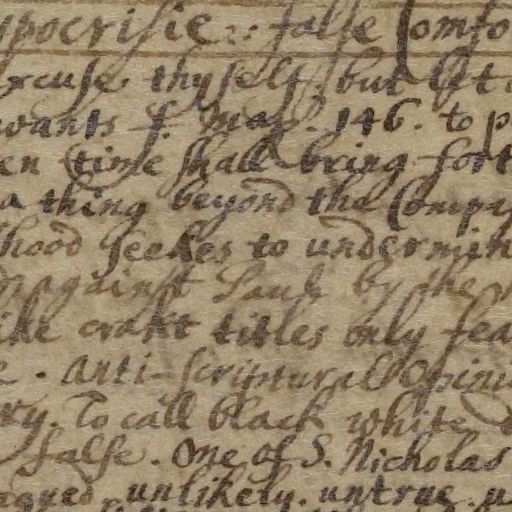 pocrisie :: false Comfo
xcuse thyself, but let
wants f. mas. 146. to p
en time shall bring fort
a thing beyond the Compa
hood seekes to undermin
against Paul by the
ike craft titles only fea
e. Anti-scripturall Opini
ry. To call black white
false. One of S. Nicholas
unlikely. untrue. u